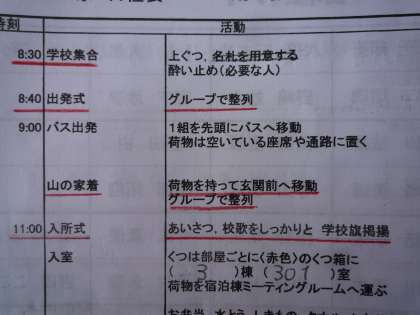 時刻 活動
8:30 学校集合 上ぐつ、名札を用意する
酔い止め(必要な人)
8:40 出発式 グループで整列
9:00 バス出発 1組を先頭にバスへ移動
荷物は空いている座席や通路に置く
山の家着 荷物を持って玄関前へ移動
グループで整列
11:00 入所式 あいさつ、校歌をしっかりと 学校旗掲揚
入室 くつは部屋ごとに〈赤色〉のくつ箱に
( 3 )棟 ( 301 )室
荷物を宿泊棟ミーティングルームへ運ぶ